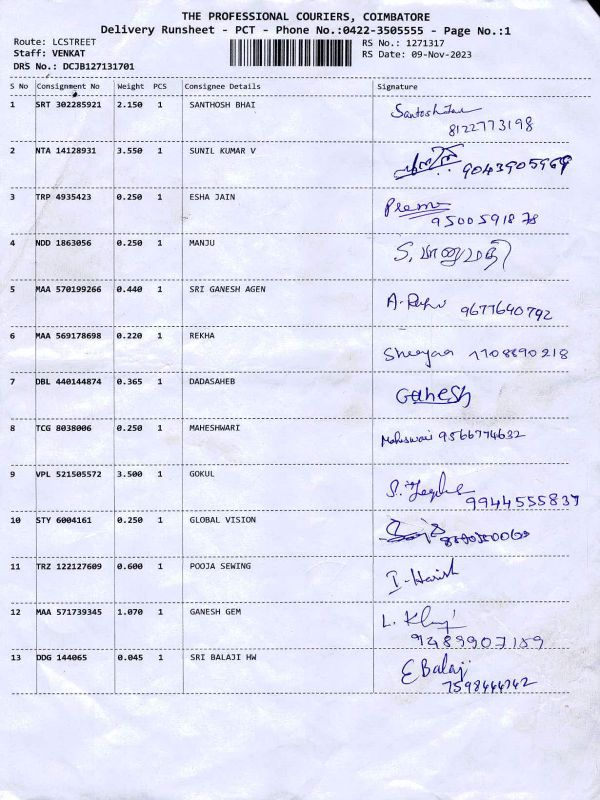 THE PROFESSIONAL COURIERS, COIMBATORE
Delivery Runsheet - PCT - Phone No.:0422-3505555 - Page No.:1
Route: LCSTREET
RS No.: 1271317
Staff: VENKAT
RS Date: 09-Nov-2023
DRS No.: DCJB127131701
S No Consignment No Weight PCS Consignee Details Signature
1 SRT 302285921 2.150 1 SANTHOSH BHAI
8122773198
2 NTA 14128931 3.550 1 SUNIL KUMAR V
3 TRP 4935423 0.250 1 ESHA JAIN Prema
9500591878
4 NDD 1863056 0.250 1 MANJU S. மானுமதி
5 MAA 570199266 0.440 1 SRI GANESH AGEN 9677640792
6 MAA 569178698 0.220 1 REKHA
7 DBL 440144874 0.365 1 DADASAHEB GaneSh
8 TCG 8038006 0.250 1 MAHESHWARI Maheswari 9566774632
9 VPL 521505572 3.500 1 GOKUL
9944555837
10 STY 6004161 0.250 1 GLOBAL VISION
11 TRZ 122127609 0.600 1 POOJA SEWING I. Harish
12 MAA 571739345 1.070 1 GANESH GEM
9489907159
13 DDG 144065 0.045 1 SRI BALAJI HW E Balaji
7598444342